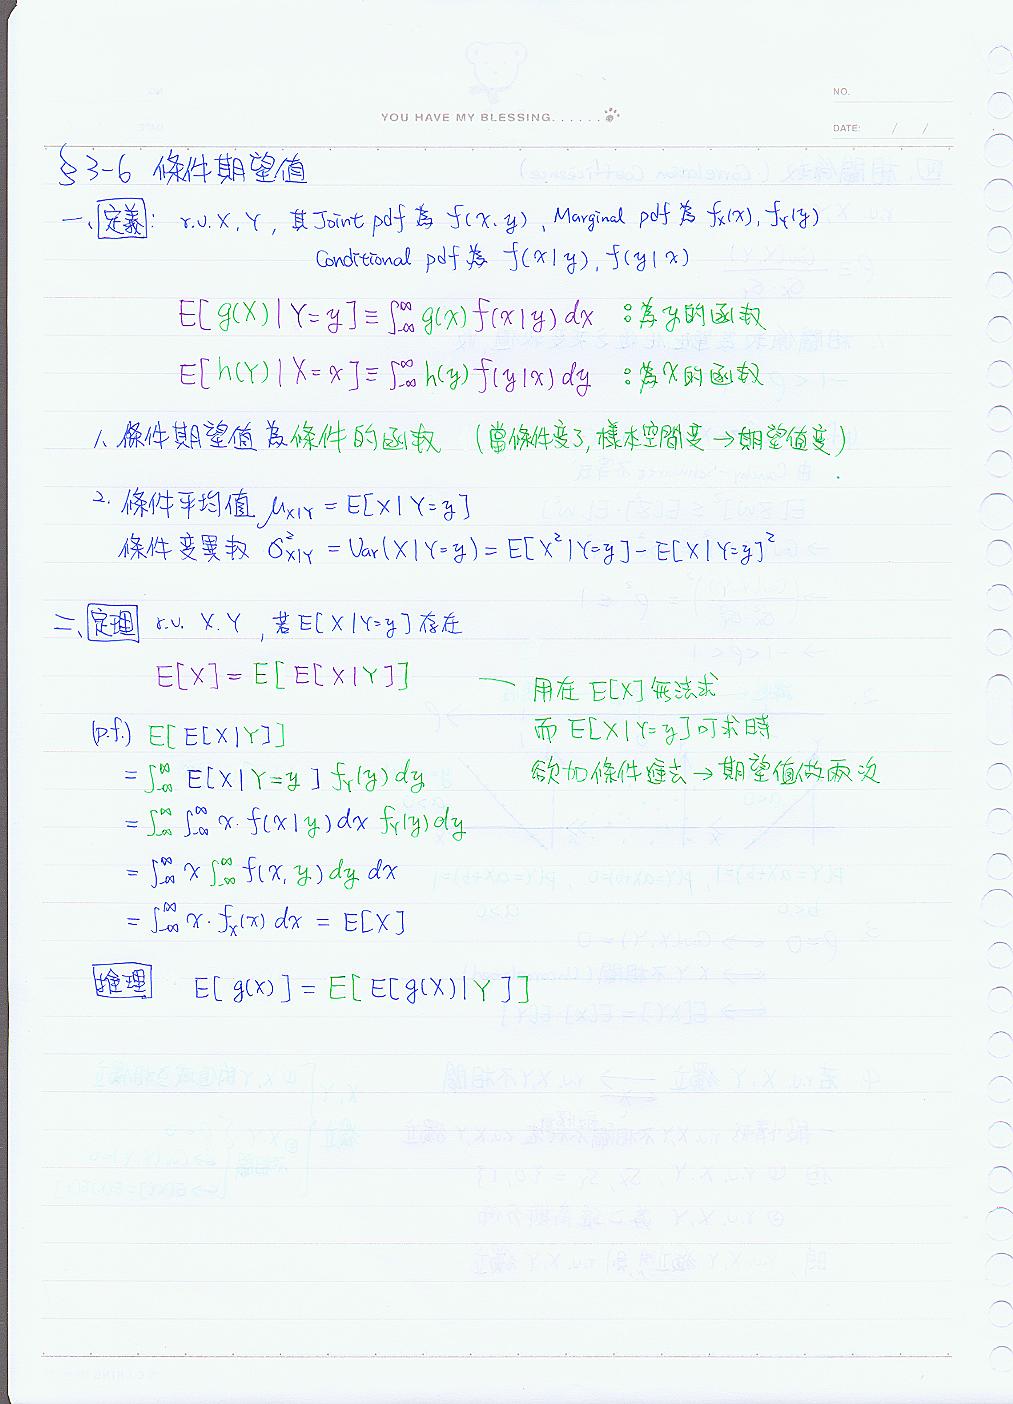 NO.
YOU HAVE MY BLESSING. . . . . .
DATE: / /
§3-6 條件期望值
一、定義: r.v. X, Y, 其Joint pdf 為 f(x, y)、Marginal pdf 為 fx(x), fY(y)
Conditional pdf 為 f(x|y), f(y|x)
E[g(X)|Y=y] ≡ ∫_{-∞}^{∞} g(x) f(x|y) dx :為y的函数
E[h(Y)|X=x] ≡ ∫_{-∞}^{∞} h(y) f(y|x) dy :為x的函数
1. 條件期望值為條件的函数 (當條件变了, 樣本空間变→期望值变)
2. 條件平均值 μ_{X|Y} = E[X|Y=y]
條件变異数 σ²_{X|Y} = Var(X|Y=y) = E[X²|Y=y] - E[X|Y=y]²
二、定理 r.v. X.Y, 若E[X|Y=y]存在
E[X] = E[E[X|Y]]
用在 E[X]無法求
而 E[X|Y=y]可求時
欲加條件進去→期望值做兩次
(p.f.) E[E[X|Y]]
= ∫_{-∞}^{∞} E[X|Y=y] fY(y) dy
= ∫_{-∞}^{∞} ∫_{-∞}^{∞} x·f(x|y) dx fY(y) dy
= ∫_{-∞}^{∞} x ∫_{-∞}^{∞} f(x, y) dy dx
= ∫_{-∞}^{∞} x·fx(x) dx = E[X]
推理 E[g(x)] = E[E[g(X)|Y]]